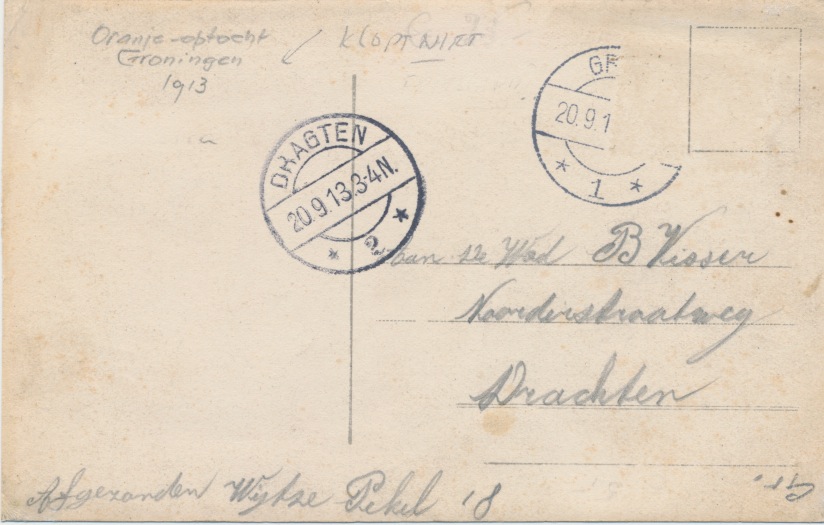 Oranje-optocht
Groningen
1913
KLOPT NIET
GR
20.9.1
1
DRAGTEN
20.9.13.3-4N.
2
Aan De Wed B Visser
Noorderstraatweg
Drachten
Afgezonden Wijtze Pekel '8